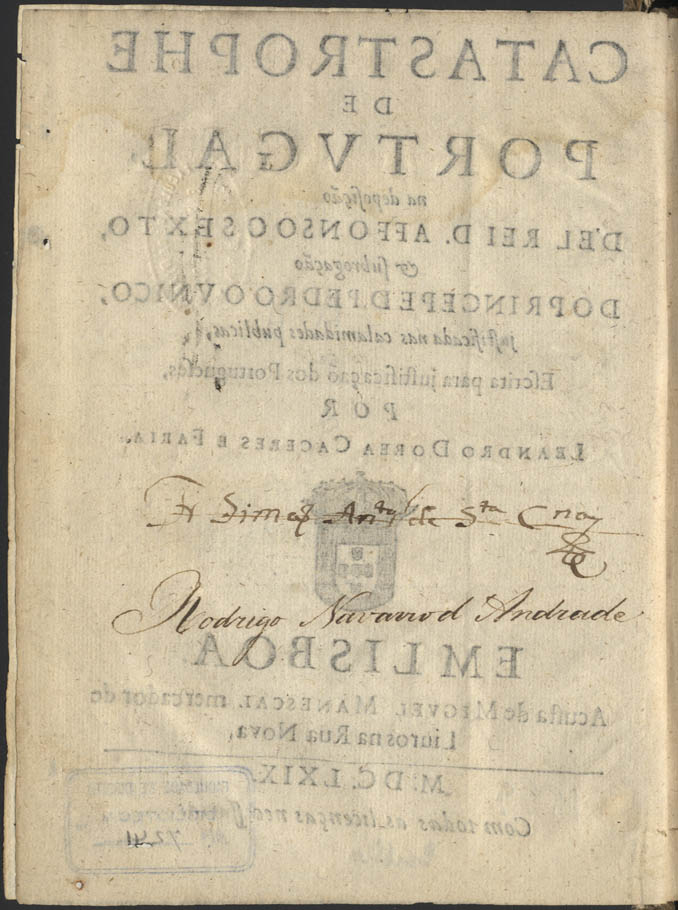 CATASTROPHE
DE
PORTVGAL,
na deposição
D'EL REI D. AFFONSO O SEXTO,
& subrogação
DO PRINCEPE D. PEDRO O VNICO,
justificada nas calamidades publicas,
Escrita para justificação dos Portugueses,
POR
LEANDRO DOREA CACERES E FARIA.
Anto de Sta
Rodrigo Navarro d Andrade
EM LISBOA
Acusta de MIGVEL MANESCAL mercador de
Liuros na Rua Nova,
M. DC. LXIX.
Com todas as licenças
7241